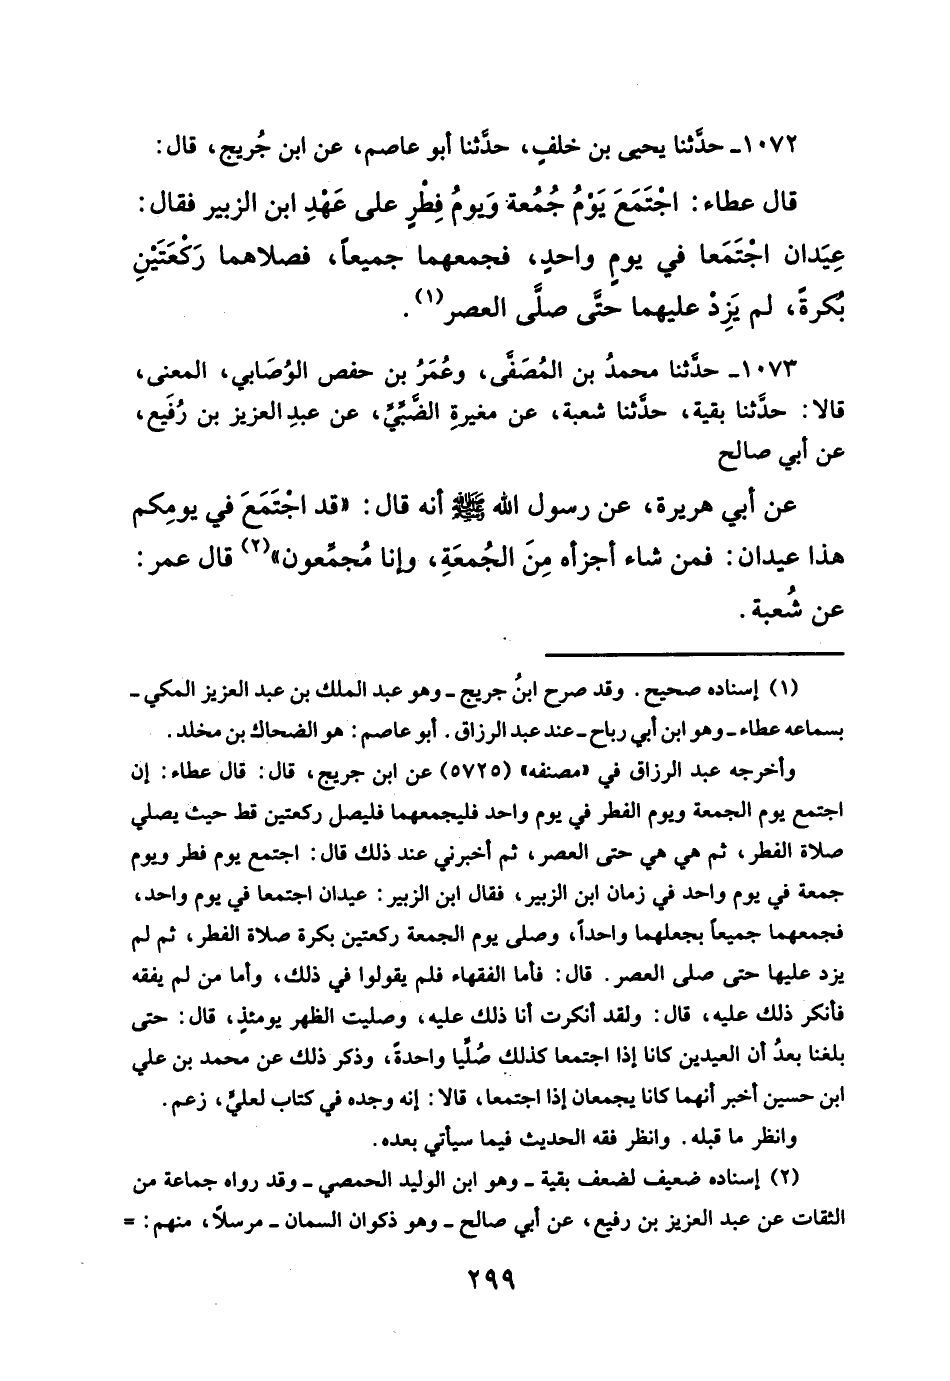 ١٠٧٢ـ حدَّثنا يحيى بن خلفٍ، حدَّثنا أبو عاصم، عن ابن جُريج، قال:
قال عطاء: اجْتَمَعَ يَوْمُ جُمُعة وَيومُ فِطْرٍ على عَهْدِ ابن الزبير فقال:
عِيَدان اجْتَمَعا في يومٍ واحدٍ، فجمعهما جميعاً، فصلاهما رَكْعَتَيْنِ
بُكرةً، لم يَزِدْ عليهما حتَّى صلَّى العصر(١).
١٠٧٣ـ حدَّثنا محمدُ بن المُصَفَّى، وعُمَرُ بن حفص الوُصَابي، المعنى،
قالا: حدَّثنا بقية، حدَّثنا شعبة، عن مغيرةِ الضَّبِّيِّ، عن عبدِ العزيز بن رُفَيع،
عن أبي صالح
عن أبي هريرة، عن رسول الله ﷺ أنه قال: «قد اجْتَمَعَ في يومِكم
هذا عيدان: فمن شاء أجزأه مِنَ الجُمعَةِ، وإنا مُجمِّعون»(٢) قال عمر:
عن شُعبة.
(١) إسناده صحيح. وقد صرح ابنُ جريج ـ وهو عبد الملك بن عبد العزيز المكي ـ
بسماعه عطاء ـ وهو ابن أبي رباح ـ عند عبد الرزاق. أبو عاصم: هو الضحاك بن مخلد.
وأخرجه عبد الرزاق في «مصنفه» (٥٧٢٥) عن ابن جريج، قال: قال عطاء: إن
اجتمع يوم الجمعة ويوم الفطر في يوم واحد فليجمعهما فليصل ركعتين قط حيث يصلي
صلاة الفطر، ثم هي هي حتى العصر، ثم أخبرني عند ذلك قال: اجتمع يوم فطر ويوم
جمعة في يوم واحد في زمان ابن الزبير، فقال ابن الزبير: عيدان اجتمعا في يوم واحد،
فجمعهما جميعاً بجعلهما واحداً، وصلى يوم الجمعة ركعتين بكرة صلاة الفطر، ثم لم
يزد عليها حتى صلى العصر. قال: فأما الفقهاء فلم يقولوا في ذلك، وأما من لم يفقه
فأنكر ذلك عليه، قال: ولقد أنكرت أنا ذلك عليه، وصليت الظهر يومئذٍ، قال: حتى
بلغنا بعدُ أن العيدين كانا إذا اجتمعا كذلك صُلِّيا واحدةً، وذكر ذلك عن محمد بن علي
ابن حسين أخبر أنهما كانا يجمعان إذا اجتمعا، قالا: إنه وجده في كتاب لعليٍّ، زعم.
وانظر ما قبله. وانظر فقه الحديث فيما سيأتي بعده.
(٢) إسناده ضعيف لضعف بقية ـ وهو ابن الوليد الحمصي ـ وقد رواه جماعة من
الثقات عن عبد العزيز بن رفيع، عن أبي صالح ـ وهو ذكوان السمان ـ مرسلاً، منهم: =
٢٩٩